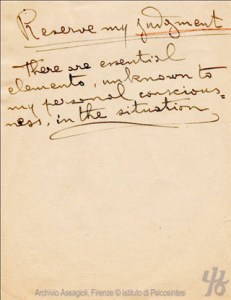 Reserve my judgment
There are essential
elements, unknown to
my personal conscious-
ness, in the situation
Archivio Assagioli, Firenze © Istituto di Psicosintesi